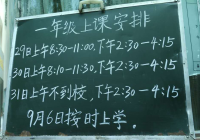 一年级上课安排
29日上午8:30-11:00,下午2:30-4:15
30日上午8:10-11:30,下午2:30-4:15
31日上午不到校,下午2:30-4:15
9月6日按时上学。